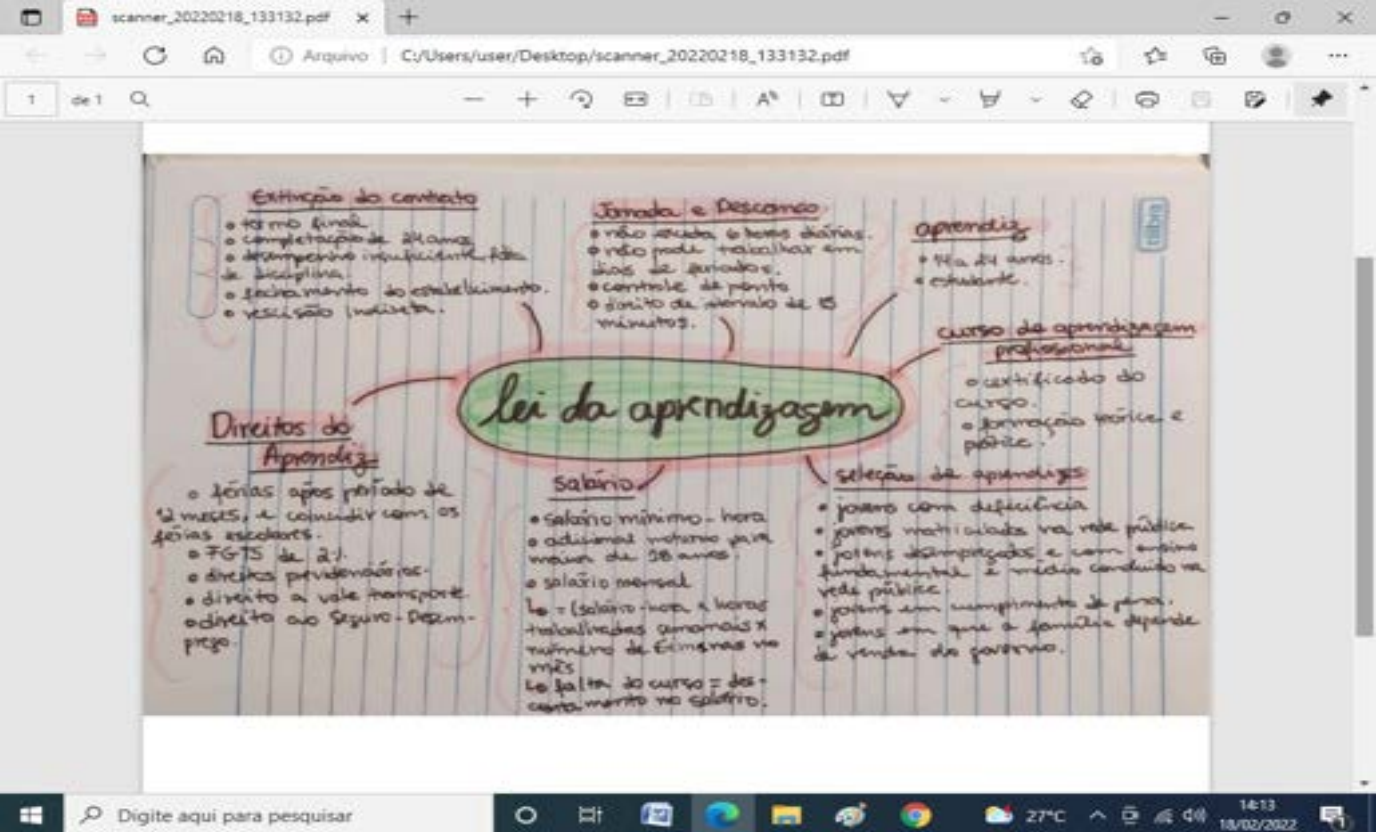 scanner_20220218_133132.pdf
Arquivo | C:/Users/user/Desktop/scanner_20220218_133132.pdf
1 de 1
Extinção do contrato
• termo final
• completação de 24 anos
• desempenho insuficiente, falta
de disciplina.
• fechamento do estabelecimento.
• rescisão indireta.
Jornada e Descanso
• não exceda 6 horas diárias.
• não pode trabalhar em
dias de feriados.
• controle de ponto
• direito de intervalo de 15
minutos.
aprendiz
• 14 a 24 anos.
• estudante.
tilibra
curso de aprendizagem
profissional
• certificado do
curso.
• formação teórica e
prática.
lei da aprendizagem
Direitos do
Aprendiz
• férias após período de
12 meses, e coincidir com os
férias escolares.
• FGTS de 2%.
• direitos previdenciários.
• direito a vale transporte
• direito ao Seguro-Desem-
prego.
Salário
• salário mínimo-hora
• adicional noturno para
maior de 18 anos.
• salário mensal
= (salário-hora x horas
trabalhadas semanais x
número de semanas no
mês
falta do curso = des-
contamento no salário.
seleção de aprendizes
• jovens com deficiência
• jovens matriculados na rede pública
• jovens desempregados e com ensino
fundamental e médio concluído na
rede pública.
• jovens em cumprimento de pena.
• jovens em que a família depende
de renda do governo.
Digite aqui para pesquisar
27°C
14:13
18/02/2022